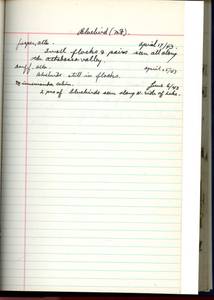 Bluebird (mt)
Jasper, Alta. April 17/43.
Small flocks & pairs seen all along
the Athabasca valley.
Banff, Alta. April 21/43
Bluebirds still in flocks.
cabin. June 6/43
2 prs of bluebirds seen along N. side of lake.